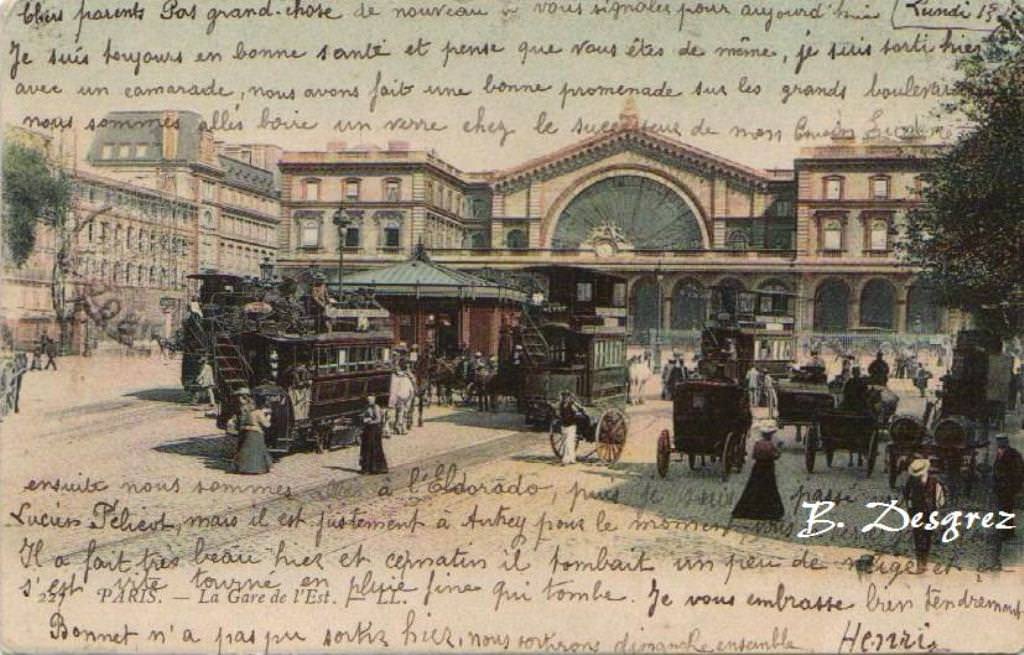 Chers parents Pas grand-chose de nouveau à vous signaler pour aujourd'hui Lundi 15
Je suis toujours en bonne santé et pense que vous êtes de même, je suis sorti hier
avec un camarade, nous avons fait une bonne promenade sur les grands boulevards
nous sommes allés boire un verre chez le successeur de mon Cousin
ensuite nous sommes allés à l'Eldorado, puis je suis passé
Lucien Pélicot, mais il est justement à Autrey pour le moment
Il a fait très beau hier et ce matin il tombait un peu de neige et
s'est vite tourné en pluie fine qui tombe. Je vous embrasse bien tendrement
221 PARIS. — La Gare de l'Est. — LL.
Bonnet n'a pas pu sortir hier, nous sortirons dimanche ensemble. Henri
B. Desgrez